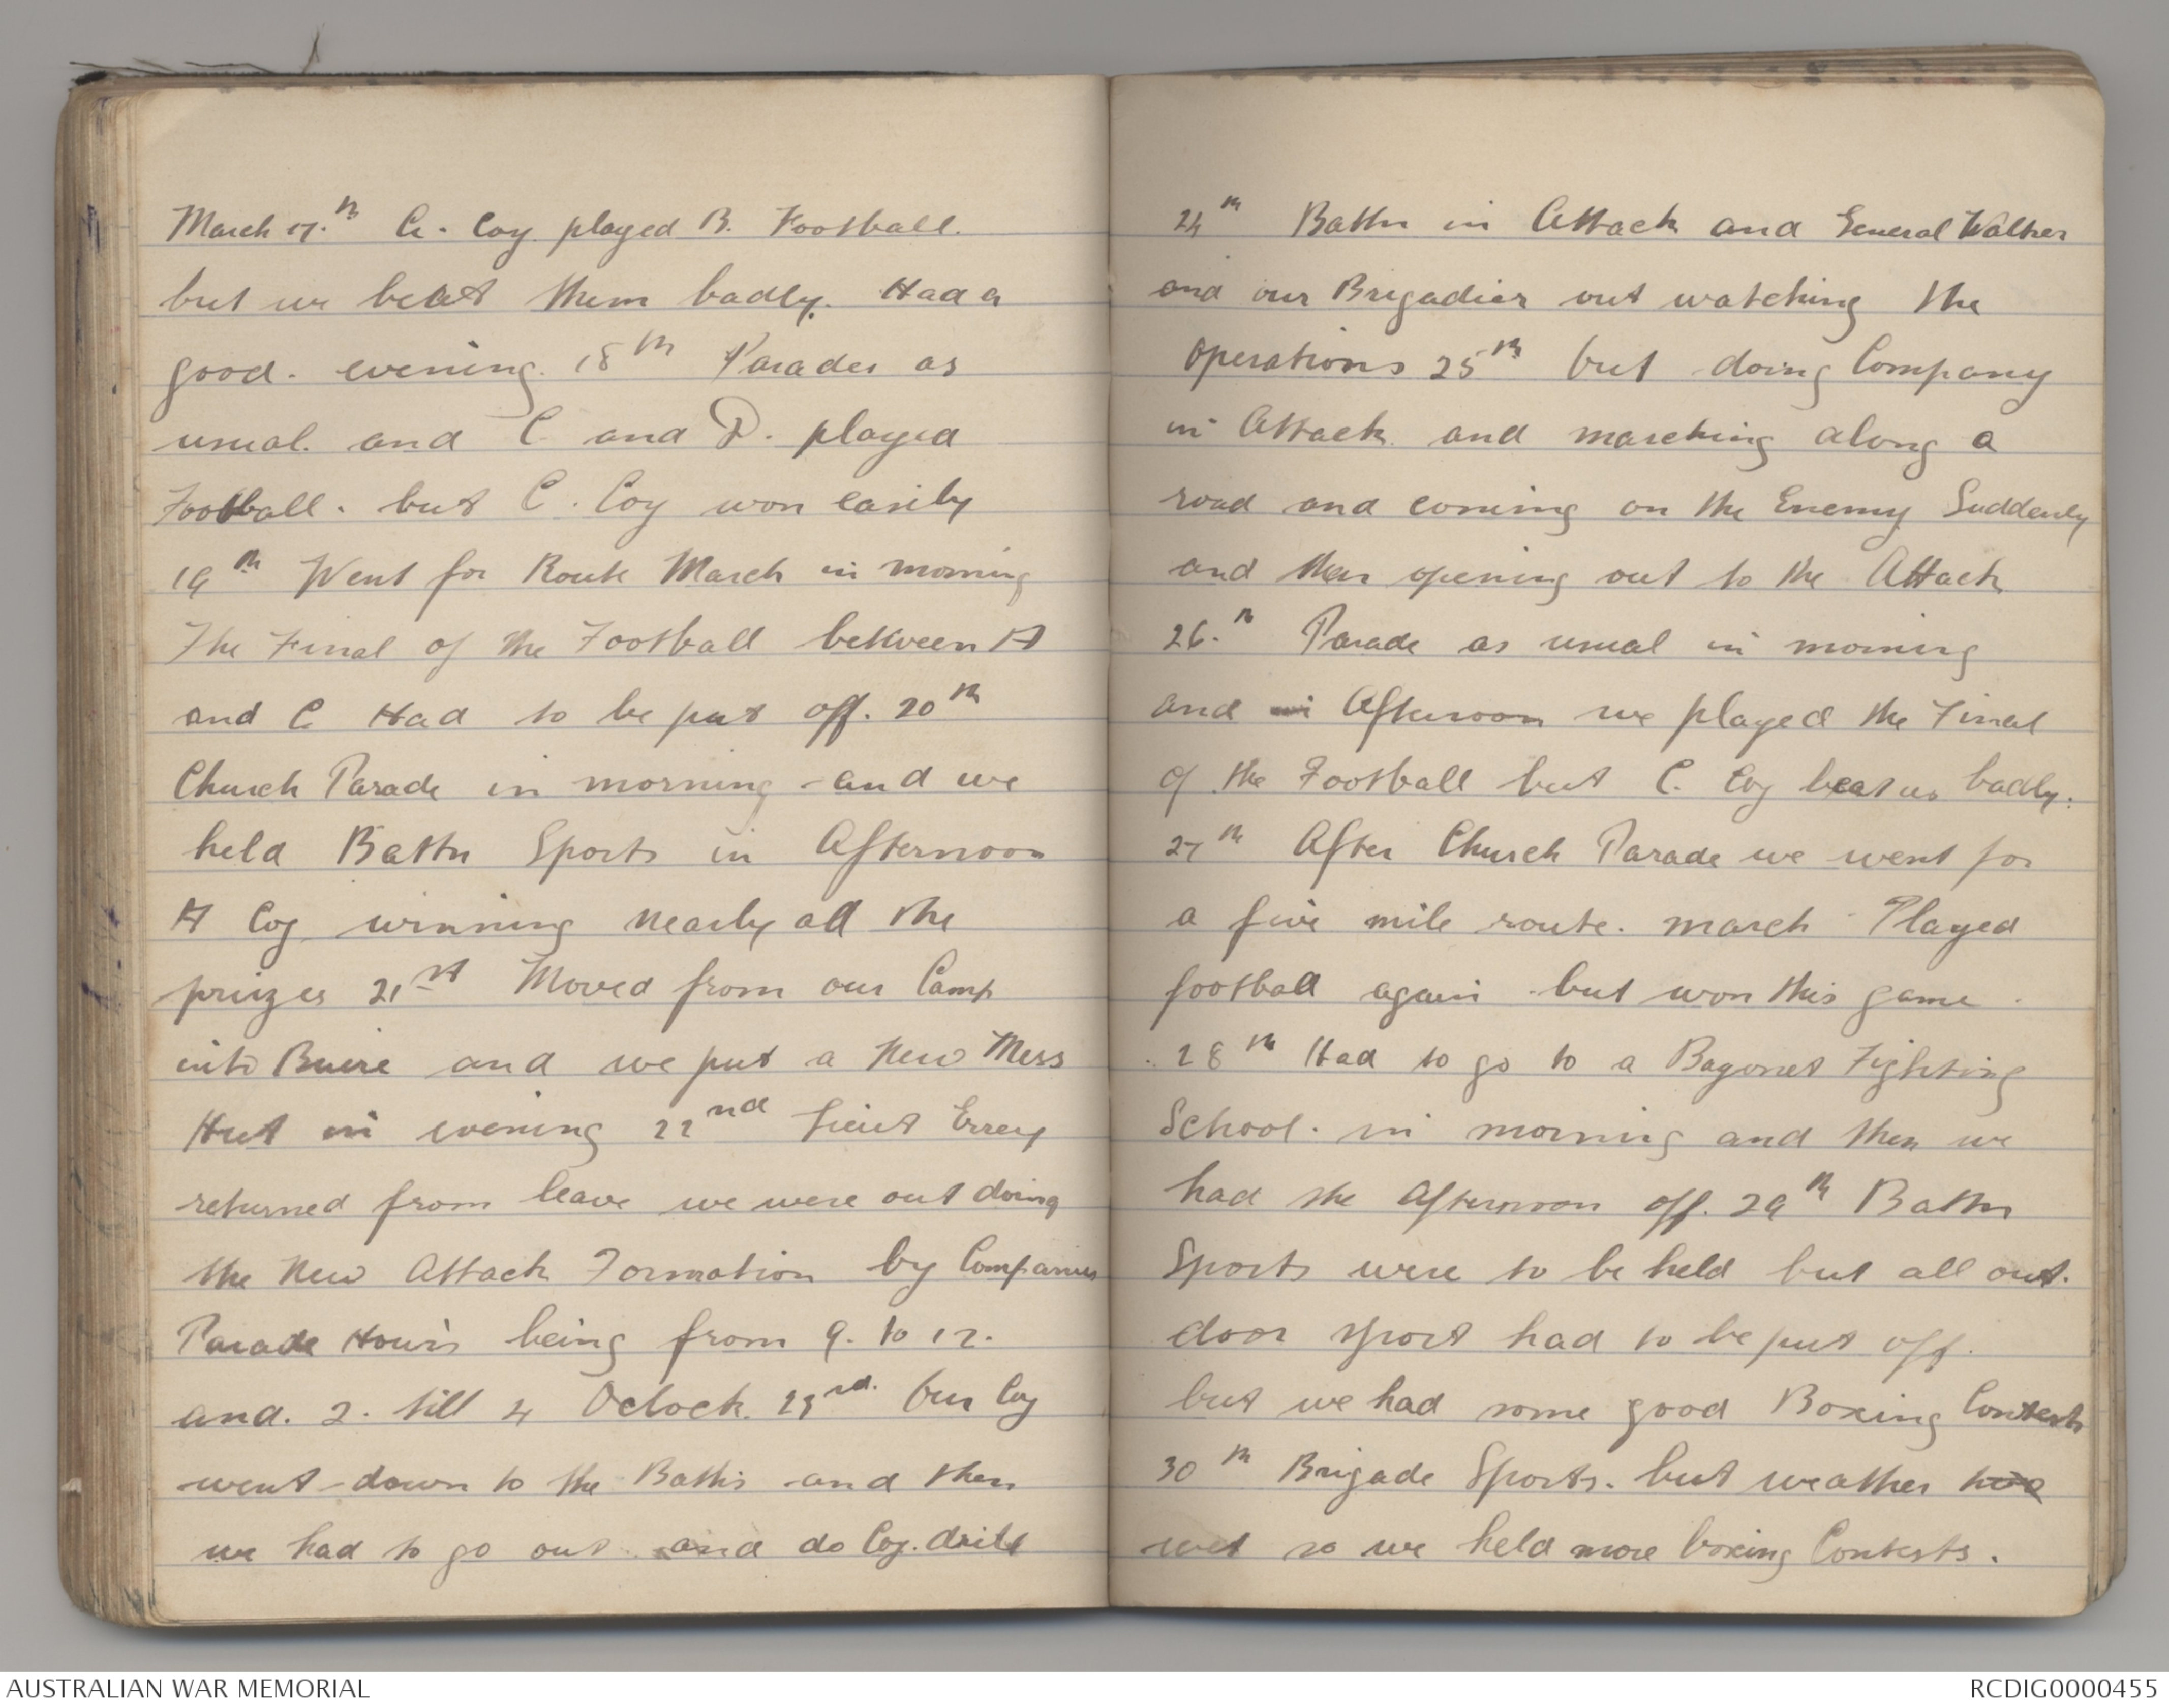 March 17.th A. Coy played B. Football.
but we beat them badly. Had a
good. evening. 18th Parades as
usual. and C. and D. played
Football. but C. Coy won easily
19th Went for Route March in morning
The Final of the Football between A
and C Had to be put off. 20th
Church Parade in morning - and we
held Battn Sports in Afternoon
A Coy winning nearly all the
prizes 21st Moved from our Camp
into Buire and we put a New Mess
Hut in evening 22nd Lieut Errey
returned from leave we were out doing
the New Attack Formation by Companies
Parade Hours being from 9. to 12.
and. 2. till 4 Oclock. 23rd. Our Coy
went down to the Baths and then
we had to go out and do Coy. drill
24th Battn in Attack and General Walker
and our Brigadier out watching the
operations 25th Out doing Company
in Attack. and marching along a
road and coming on the Enemy Suddenly
and then opening out to the Attack
26.th Parade as usual in morning
and Afternoon we played the Final
of the Football but C. Coy beat us badly.
27th After Church Parade we went for
a five mile route. march Played
football again - but won this game.
28th Had to go to a Bayonet Fighting
School. in morning and then we
had the Afternoon off. 29th Battn
Sports were to be held but all out.
door sport had to be put off.
but we had some good Boxing Contests
30th Brigade Sports. but weather
wet so we held more boxing Contests.
AUSTRALIAN WAR MEMORIAL
RCDIG0000455